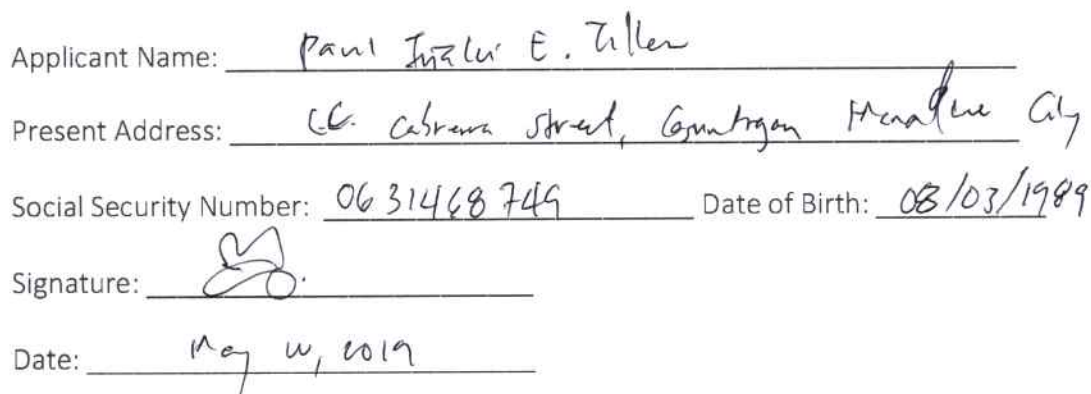 Applicant Name: Paul E. Tiller
Present Address: C.C. Cabrera Street, City
Social Security Number: 0631468749 Date of Birth: 08/03/1989
Signature:
Date: May 2019